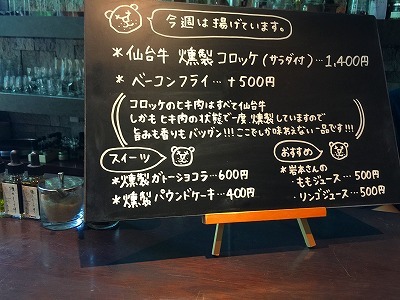 今週は揚げています。
*仙台牛 燻製コロッケ(サラダ付)…1,400円
*ベーコンフライ…+500円
コロッケのヒキ肉はすべて仙台牛
しかもヒキ肉の状態で一度燻製していますので
旨みも香りもバツグン!!!ここでしか味わえない一品です!!!
スイーツ
*燻製ガトーショコラ…600円
*燻製パウンドケーキ…400円
おすすめ
*岩本さんの
ももジュース…500円
リンゴジュース…500円